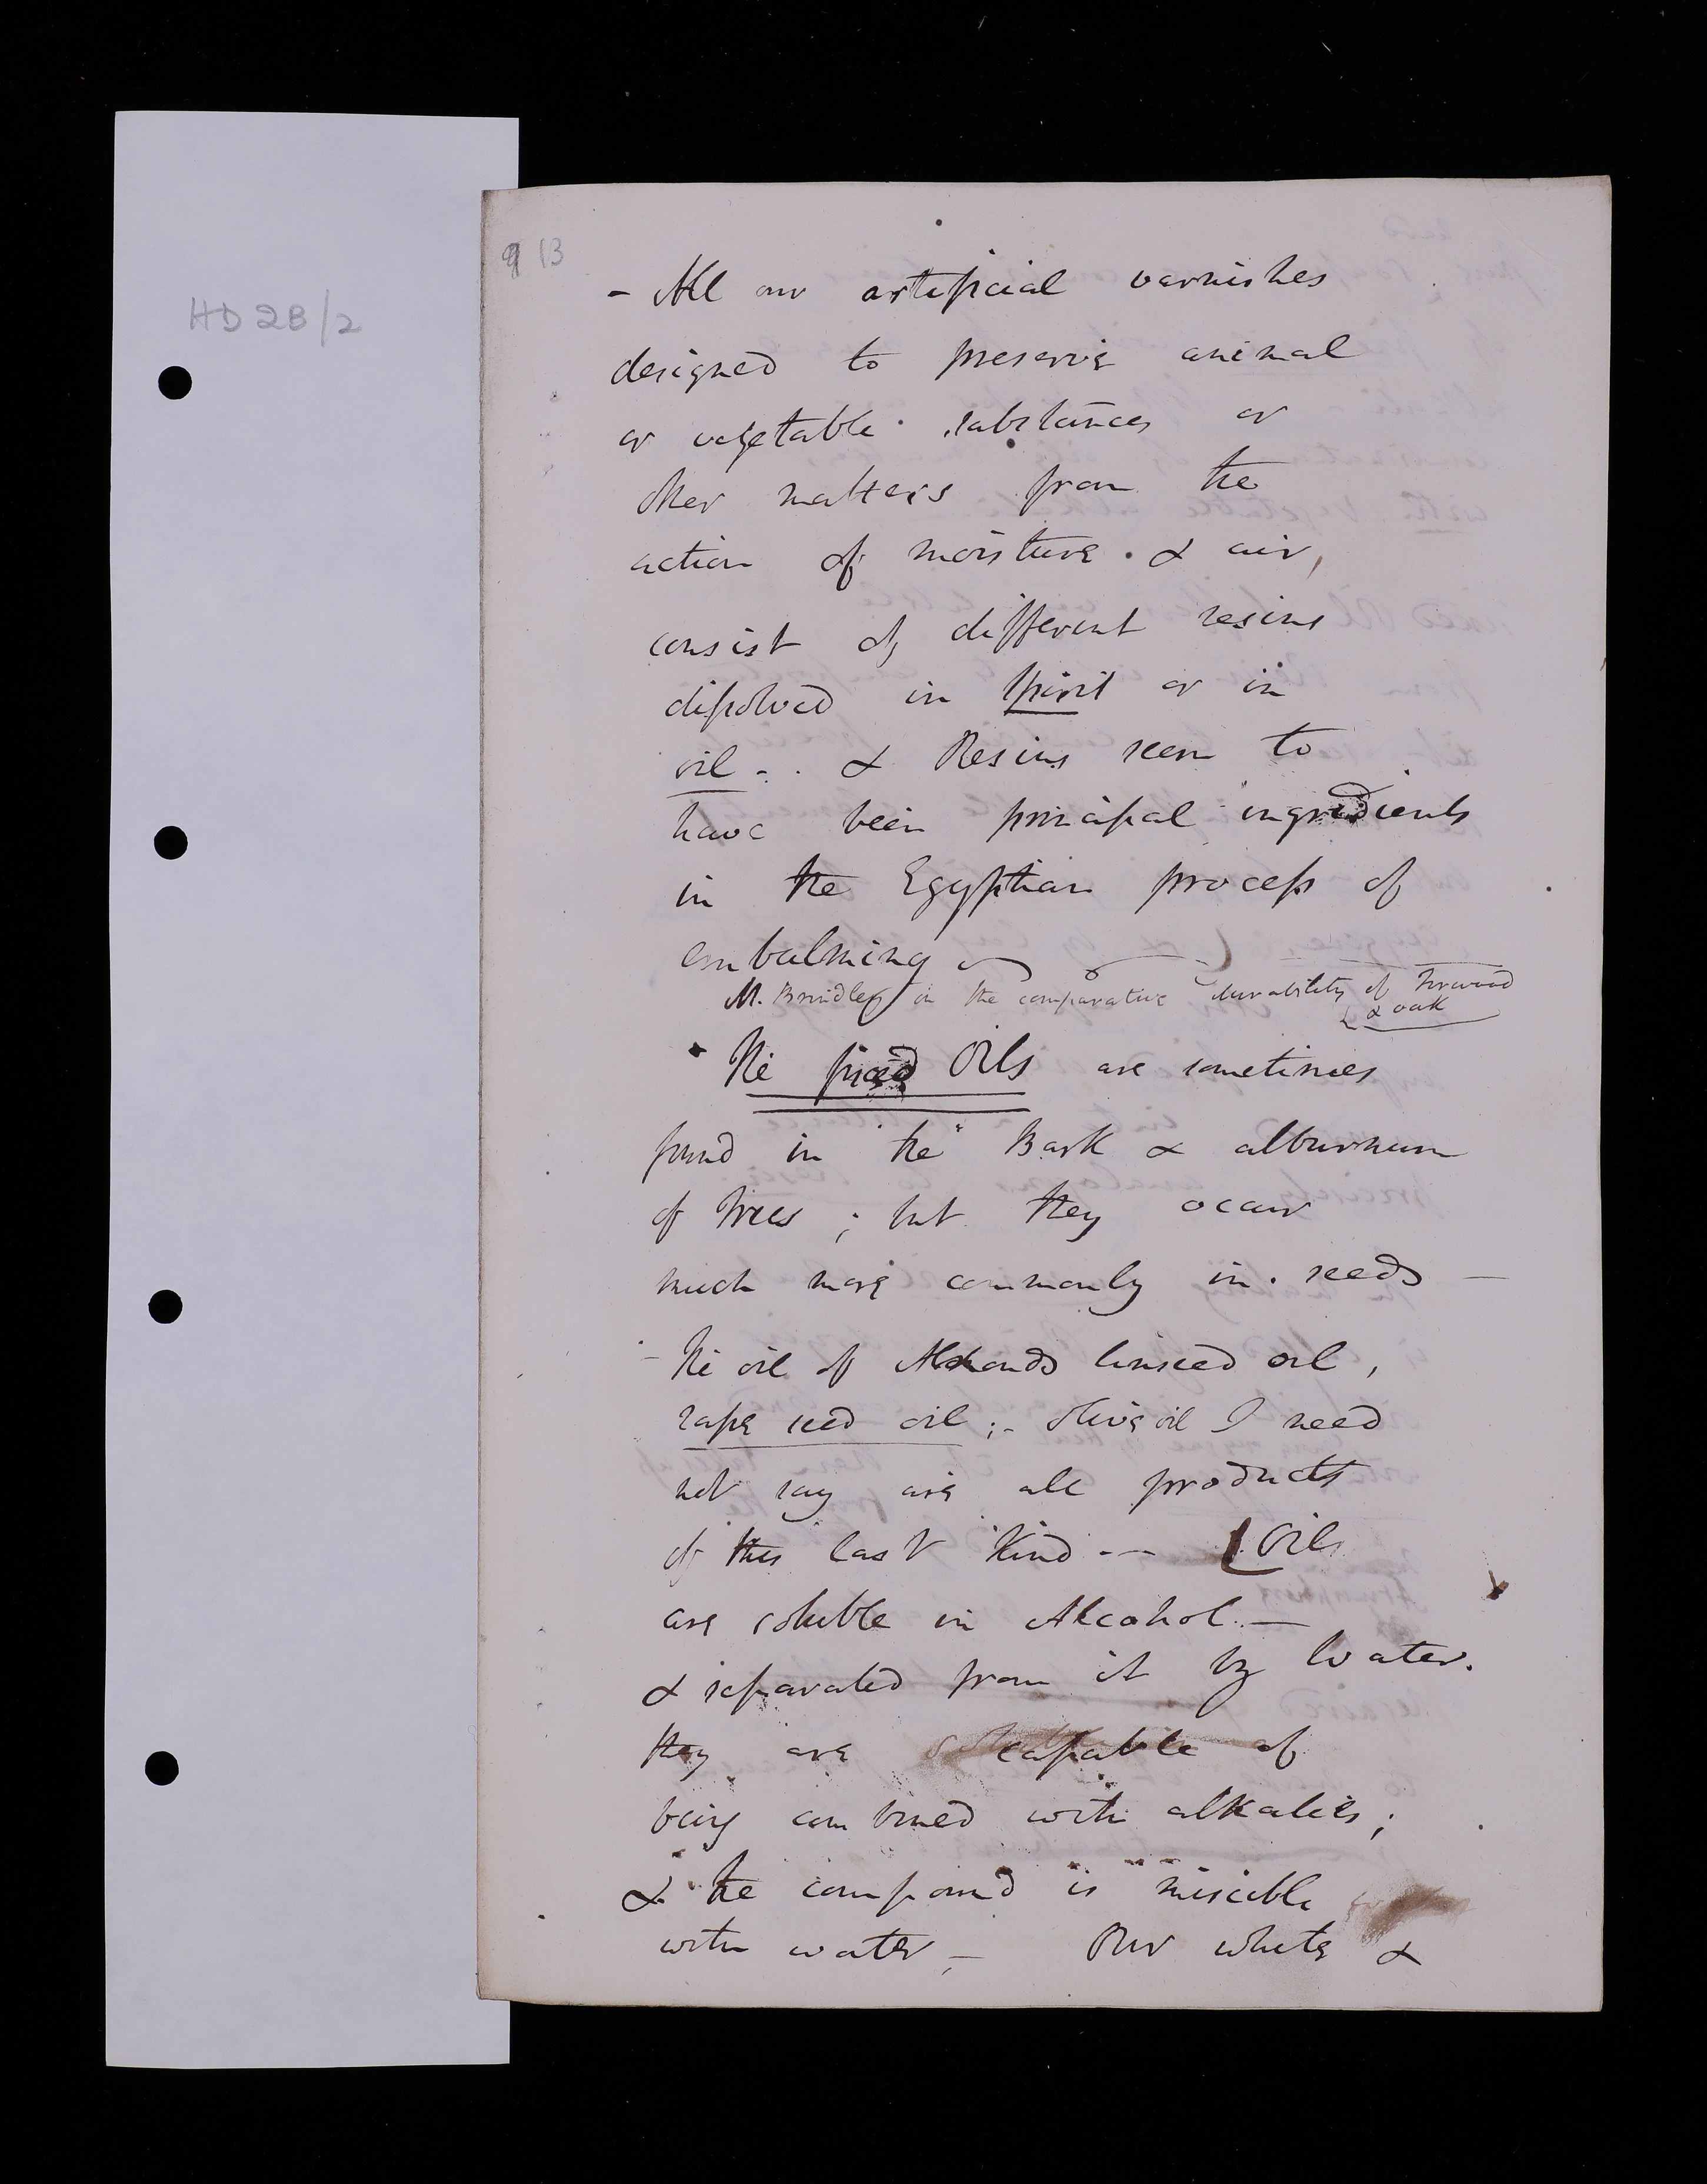 HD 2B/2
9 13
- All our artificial varnishes
designed to preserve animal
or vegetable substances or
other matters from the
action of moisture & air,
consist of different resins
dissolved in spirit or in
oil - . & Resins seem to
have been principal ingredients
in the Egyptian process of
embalming
M. Brindley on the comparative durability of firwood
& oak
The fixed Oils are sometimes
found in the Bark & alburnum
of trees ; but they occur
much more commonly in seeds —
- The oil of Almonds linseed oil,
rape seed oil ;- olive oil I need
not say are all products
of this last kind -- Oils
are soluble in Alcohol. —
& separated from it by Water.
they are capable of
being combined with alkalies;
& the compound is miscible
with water, — Our white &